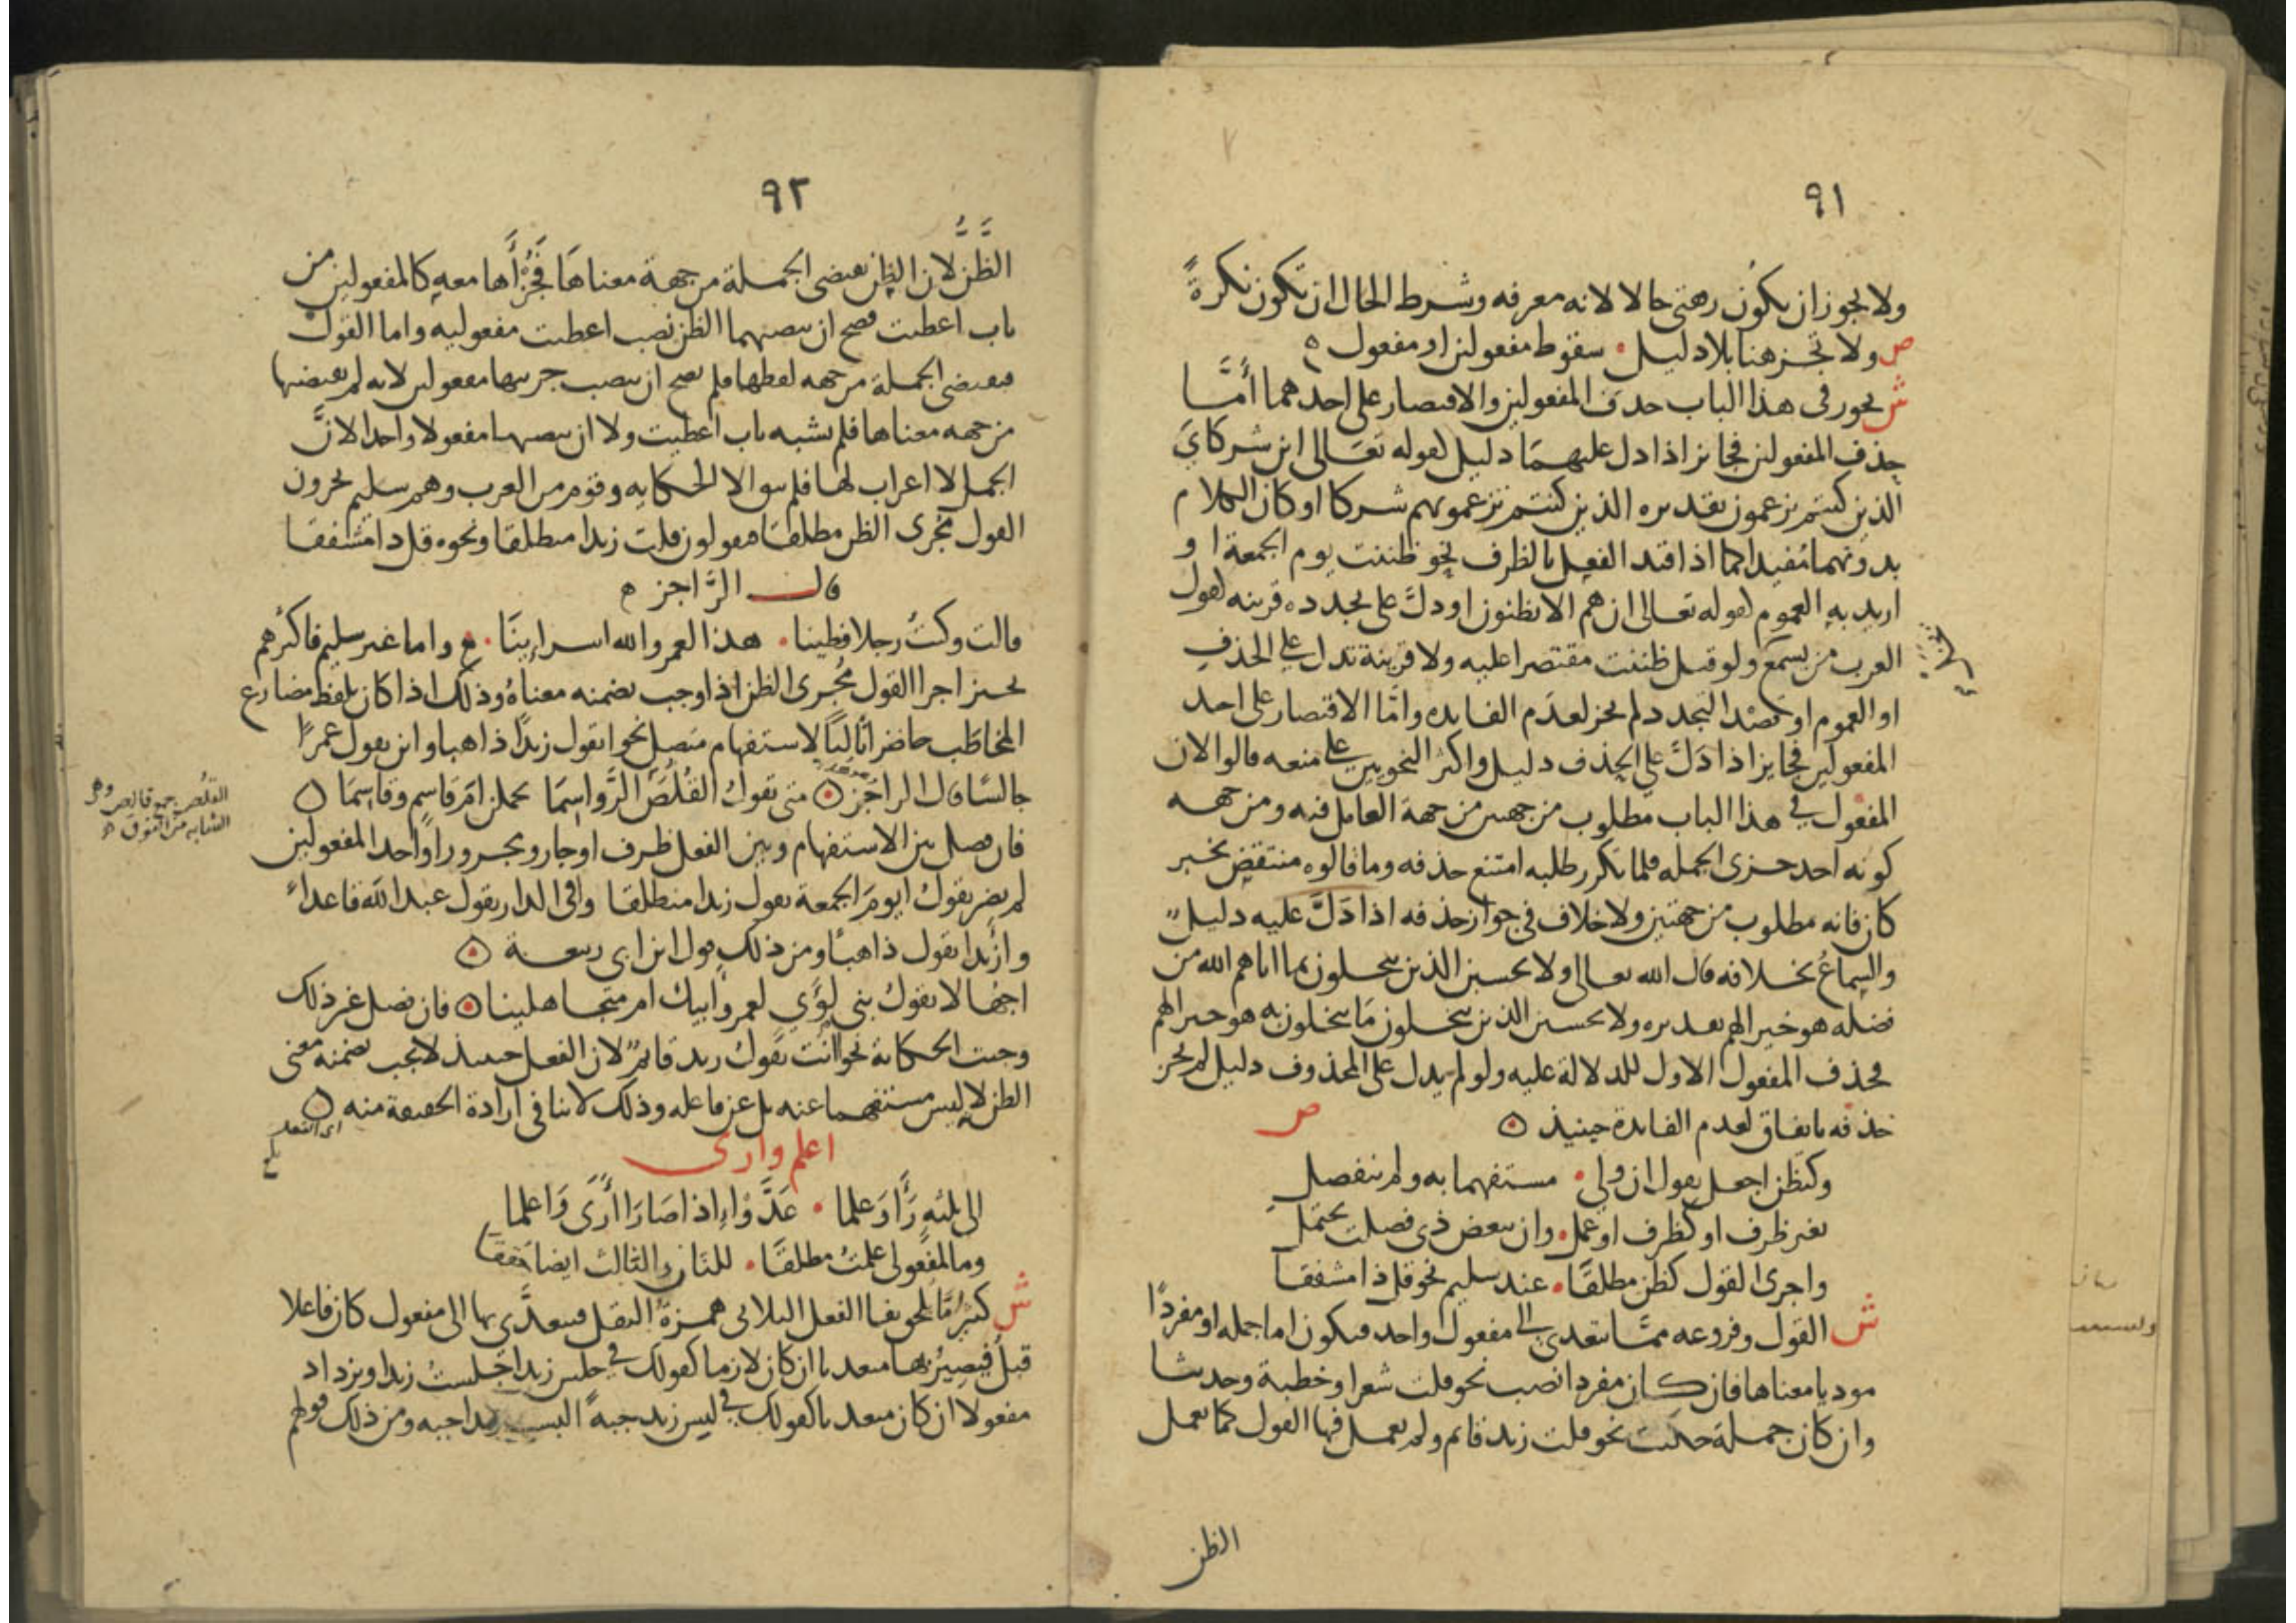 ٩١
ولا يجوز ان يكون رفقتي حالا لانه معرفه وشرط الحال ان تكون نكرةً
ص ولا تجز هنا بلا دليل • سقوط مفعولين او مفعول ٥
ش يجوز في هذا الباب حذف المفعولين والاقتصار على احدهما أمَّا
حذف المفعولين فجائز اذا دل عليهما دليل لقوله تعَالى اين شركايَ
الذين كنتم تزعمون تقديره الذين كنتم تزعمونهم شركا او كان الكلام
بدونهما مُفيدا كما اذا قيد الفعل بالظرف نحو ظننت يوم الجمعة او
اريد به العموم لقوله تعالى ان هم الا يظنون او دلَّ على تجدده قرينه لقول
العرب من يسمع ولو قيل ظننت مقتصرا عليه ولا قرينة تدل على الحذف
او العموم او قصْد التجدد لم يجز لعدَم الفايده وامَّا الاقتصار على احد
المفعولين فجايز اذا دَلَّ على الحذف دليل واكثر النحويين على منعه قالوا لان
المفعول في هذا الباب مطلوب من جهتين من جهة العامل فيه ومن جهه
كونه احد جزئ الجمله فلما تكرر طلبه امتنع حذفه وما قالوه منتقض بخبر
كان فانه مطلوب من جهتين ولا خلاف في جواز حذفه اذا دَلَّ عليه دليل
والسماعُ بخلافه قال الله تعالى ولا يحسبن الذين يبخلون بما اتاهم الله من
فضله هو خير الهم تقديره ولا يحسبن الذين يبخلون مَا يبخلون به هو خيرا لهم
فحذف المفعول الاول للدلالة عليه ولو لم يدل على المحذوف دليل لم يجز
حذفه باتفاق لعدم الفايدة حينيذ ٥ ص
وكتظن اجعل تقول ان ولي • مستفهما به ولم ينفصلِ
بغير ظرف او كظرف او عمل • وان ببعض ذي فصلت يحتمل
واجرى القول كظن مطلقًا • عند سليم نحو قل ذا مشفقا
ش القول وفروعه ممَّا يتعدى الى مفعول واحد فيكون اما جمله او مفردًا
موديا معناها فان كان مفردا نصب نحو قلت شعرا وخطبة وحديثا
وان كان جملة حكيت نحو قلت زيد قائم ولم يعمل فيها القول كما يعمل
الظن
٩٢
الظَّنُّ لان الظن يقتضي الجملة من جهة معناهَا فجُزْأَاها معه كالمفعولين من
باب اعطيت فصح ان ينصبهما الظن نصب اعطيت مفعوليه واما القول
فيقتضي الجملة من جهه لفظها فلم يصح ان ينصب جزييها مفعولين لانه لم يقتضها
من جهه معناها فلم يشبه باب اعطيت ولا ان ينصبها مفعولا واحدا لانَّ
الجمل لا اعراب لها فلم يبق الا الحكاية وقوم من العرب وهم سليم يجرون
القول مجرى الظن مطلقا فيقولون قلت زيدا منطلقا ونحوه قل ذا مشفقا
قال الرَّاجز ه
قالت وكنتُ رجلا فطينا • هذا لعمر والله اسراينَا • واما غير سليم فاكثرهم
يجيز اجرا القول مُجرى الظن اذا وجب تضمنه معناهُ وذلك اذا كان بلفظ مضارع
المخاطَب حاضر اتاليًا لاستفهام متصل نحو اتقول زيدًا ذاهبا واين تقول عمرًا
جالسًا قال الراجز ٥ متى تقولُ القُلُصَ الرَّواسِمَا يحملن امّ قاسِم وقاسِمَا ٥
القلُص جمع قالِص وهي
الشابه من النوق
فان فصل بين الاستفهام وبين الفعل ظرف او جار ومجرور او احد المفعولين
لم يضر يقولُ ايومَ الجمعة تقول زيدا منطلقا وافي الدار تقول عبد الله قاعداً
وازيدا تقول ذاهبًا ومن ذلك قول ابن ابي ربيعة ٥
اجهّالا تقولُ بني لُؤَيٍ لعمر وابيك ام متجاهلينا ٥ فان فصل غير ذلك
وجبت الحكاية نحو اانت تقولُ زيد قائمٌ لان الفعل حينيذ لا يجب تضمنه معنى
الظن لانه ليس مستفهما عنه بل عن فاعله وذلك لا ينافي ارادة الحقيقة منه ٥
اعلم وارى
الى ثلثةٍ رَأَى وَعلما • عَدَّوْا اذا صَارَا أَرَى وَاعلما
وما لمفعولي علمتُ مطلقًا • للثان والثالث ايضا حُققا
ش كثيرًا مَّا يلحق بفا الفعل الثلاثي همزةُ النقل فيتعدَّى بها الى مفعول كان فاعلا
قبلُ فيصِيرُ بها متعديا ان كان لازما كقولك في جلس زيد اجلستُ زيدا ويزداد
مفعولا ان كان متعديا كقولك في لبس زيد جبةً البست زيدا جبه ومن ذلك قولهم